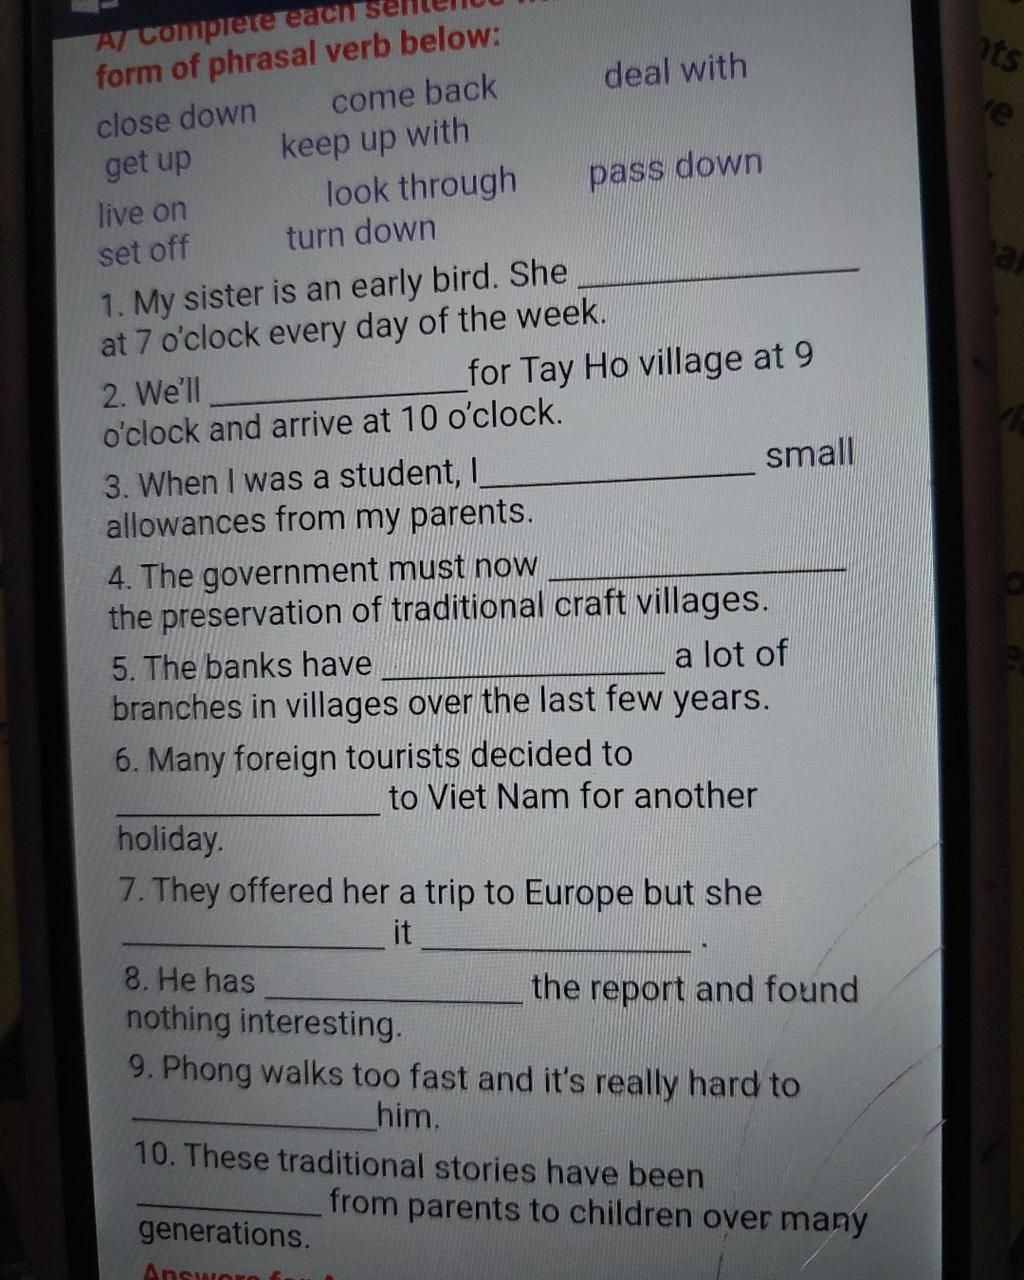 A/ Complete each sentence
form of phrasal verb below:
close down come back deal with
get up keep up with
live on look through pass down
set off turn down
1. My sister is an early bird. She ____________
at 7 o'clock every day of the week.
2. We'll ____________ for Tay Ho village at 9
o'clock and arrive at 10 o'clock.
3. When I was a student, I ____________ small
allowances from my parents.
4. The government must now ____________
the preservation of traditional craft villages.
5. The banks have ____________ a lot of
branches in villages over the last few years.
6. Many foreign tourists decided to
____________ to Viet Nam for another
holiday.
7. They offered her a trip to Europe but she
____________ it ____________ .
8. He has ____________ the report and found
nothing interesting.
9. Phong walks too fast and it's really hard to
____________ him.
10. These traditional stories have been
____________ from parents to children over many
generations.
Answers for